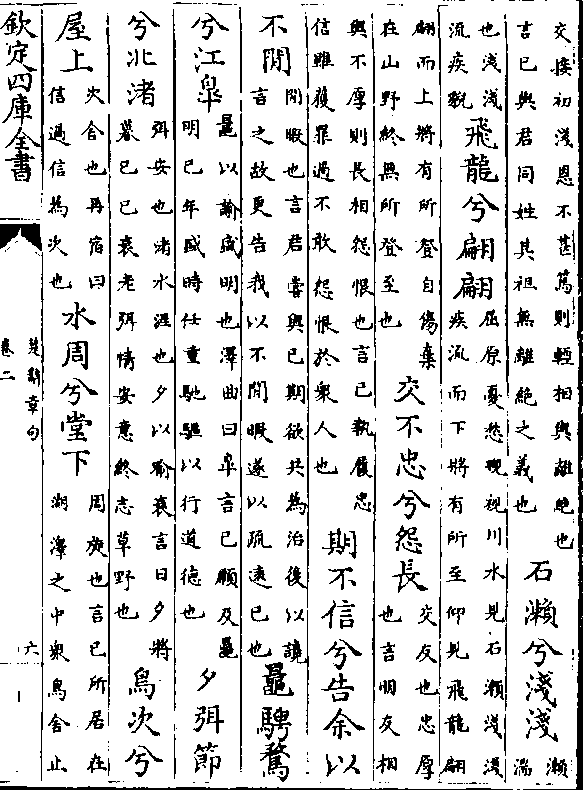 交接初淺恩不甚篤則輕相與離絶也
言已與君同姓共祖無離絶之義也
石瀨兮淺淺
瀨
湍
也淺淺
流疾貌
飛龍兮翩翩
屈原憂愁視視川水見石瀨淺淺
疾流而下將有所至仰見飛龍翩
翩而上將有所登自傷棄
在山野終無所登至也
交不忠兮怨長
交友也忠厚
也言朋友相
與不厚則長相怨恨也言已執履忠
信雖獲罪過不敢怨恨於衆人也
期不信兮告余以
不閒
閒暇也言君嘗與已期欲共為治後以讒
言之故更告我以不閒暇遂以疏遠已也
鼂騁騖
兮江臯
鼂以諭盛明也澤曲曰臯言已願及鼂
明已年盛時任重馳驅以行道德也
夕弭節
兮北渚
弭安也渚水涯也夕以喻衰言日夕將
暮已已衰老弭情安意終志草野也
鳥次兮
屋上
次舍也再宿曰
信過信為次也
水周兮堂下
周旋也言已所居在
湖澤之中衆鳥舍止
欽定四庫全書
楚辭章句
卷二
六